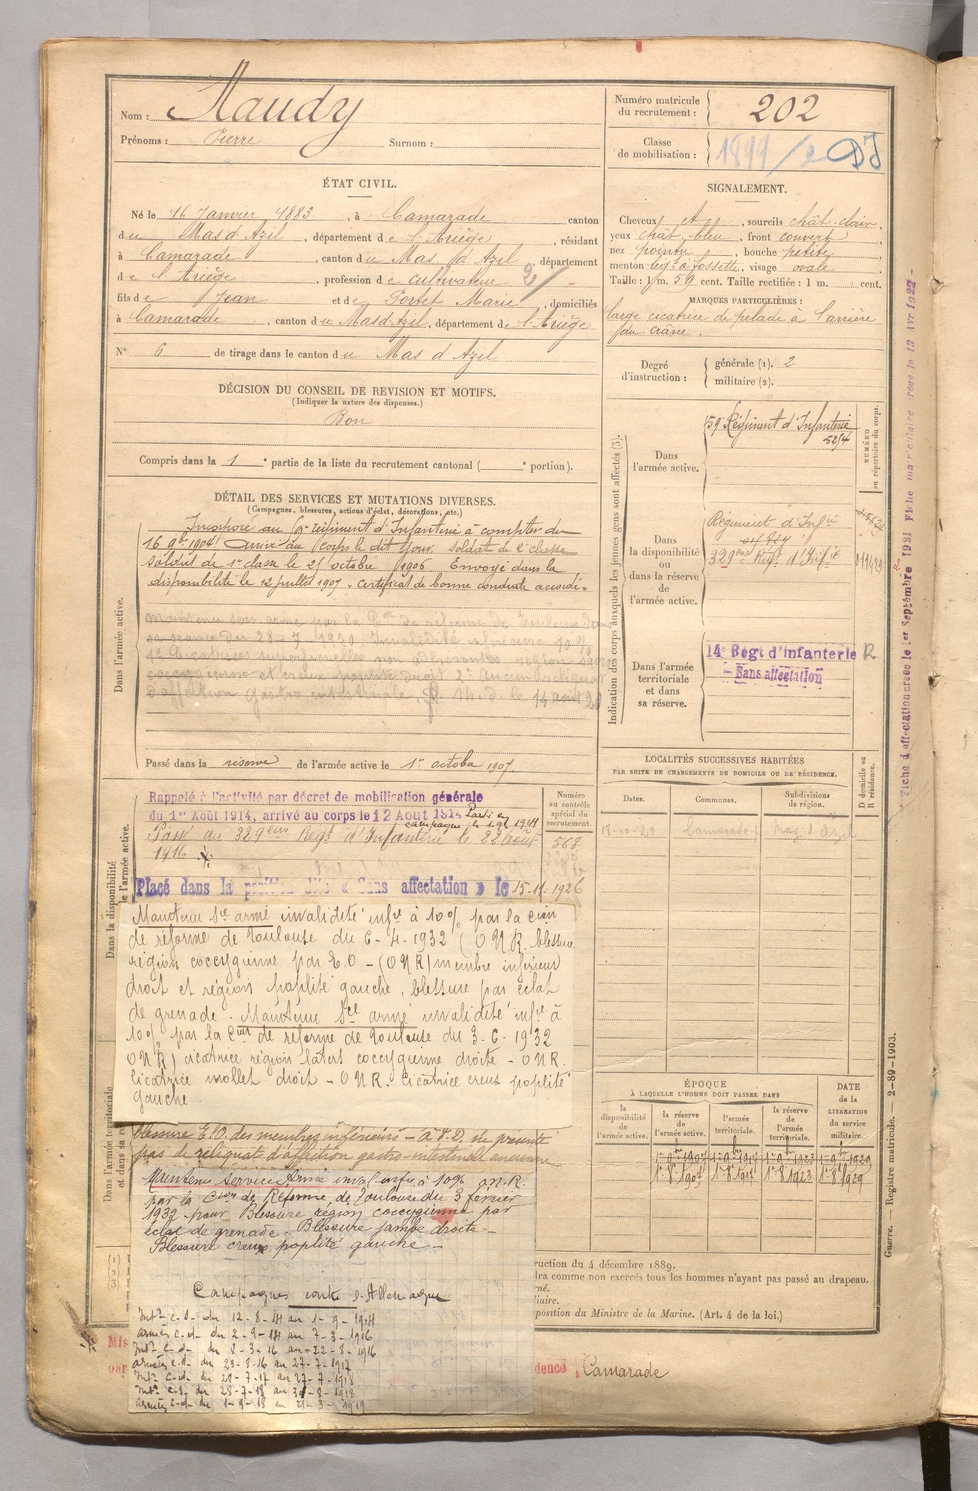 Nom : Naudy
Prénoms : Pierre Surnom :
Numéro matricule du recrutement : 202
Classe de mobilisation : 1899/2
ÉTAT CIVIL.
Né le 16 Janvier 1883, à Camarade canton
du Mas d'Azil, département de l'Ariège, résidant
à Camarade, canton du Mas d'Azil, département
de l'Ariège, profession de cultivateur 2/
fils de Jean et de Portet Marie, domiciliés
à Camarade, canton du Mas d'Azil, département de l'Ariège
N° 6 de tirage dans le canton du Mas d'Azil
SIGNALEMENT.
Cheveux, sourcils chât. clair,
yeux chât. bleu, front couvert
nez pointu, bouche petite,
menton à fossette, visage ovale.
Taille : 1 m. 59 cent. Taille rectifiée : 1 m. cent.
MARQUES PARTICULIÈRES :
large cicatrice de pelade à l'arrière
du crâne.
Degré d'instruction : générale (1). 2
militaire (2).
DÉCISION DU CONSEIL DE REVISION ET MOTIFS.
(Indiquer la nature des dispenses.)
Bon
Compris dans la 1e partie de la liste du recrutement cantonal ( e portion).
DÉTAIL DES SERVICES ET MUTATIONS DIVERSES.
(Campagnes, blessures, actions d'éclat, décorations, etc.)
Dans l'armée active.
Incorporé au régiment d'Infanterie à compter du
16 9bre 1904 Arrivé au corps le dit jour. soldat de 2e classe
soldat de 1e classe le 21 octobre 1906 Envoyé dans la
disponibilité le 12 juillet 1907 - Certificat de bonne conduite accordé.
Maintenu serv. armé par la de réforme de Toulouse dans
sa séance du 28-7-1921 Invalidité inférieure 10 %
cicatrices superficielles non adhérentes région
droit 2°
d'affection gastro intestinale le 14 août 21
Passé dans la réserve de l'armée active le 1er octobre 1907
Indication des corps auxquels les jeunes gens sont affectés (3).
NUMÉRO au répertoire du corps.
Dans l'armée active.
59e Régiment d'Infanterie
5214
Dans la disponibilité ou dans la réserve de l'armée active.
Régiment d'Infie
329ème Régt d'Infie
011429
Dans l'armée territoriale et dans sa réserve.
14e Régt d'Infanterie R
- Sans affectation
Fiche d'affectation créée le 1er Septembre 1921 Fiche matriculaire créée le 13 Avr 1923 -
LOCALITÉS SUCCESSIVES HABITÉES
PAR SUITE DE CHANGEMENTS DE DOMICILE OU DE RÉSIDENCE.
Dates. Communes. Subdivisions de région. D domicile ou R résidence.
Camarade Mas d'Azil
Dans la disponibilité
le l'armée active.
Numéro au contrôle spécial du recrutement.
568
Rappelé à l'activité par décret de mobilisation générale
du 1er Août 1914, arrivé au corps le 12 Août 1914 Parti en
campagne le 1.9.1914
Passé au 329ème Régt d'Infanterie le 22 Août
1916
Placé dans la position dite « Sans affectation » le 15-11-1926
Maintenu Sce armé invalidité infre à 10% par la Cion
de réforme de Toulouse du 6-4-1932 (ONR. blessure
région coccygienne par E.O - (ONR) membre inférieur
droit et région poplité gauche, blessure par éclat
de grenade. Maintenu Sce armé invalidité infre à
10% par la Con de réforme de Toulouse du 3-6-1932
ONR) cicatrice région latero coccygienne droite - ONR.
Cicatrice mollet droit - ONR. Cicatrice creux poplité
gauche.
Dans l'armée territoriale
blessure E.O. des membres inférieurs - A.E.2. ne présente
pas de reliquat d'affection gastro-intestinale ancienne
Maintenu Services Armé inval. infre à 10% O.N.R.
par la Cion de Réforme de Toulouse du 3 février
1932 pour Blessure région coccygienne par
éclat de grenade. Blessure jambe droite -
Blessure creux poplité gauche -
Campagnes contre l'Allemagne
Intr c.s. du 12-8-14 au 1-9-1914
armées c.d. du 2-9-14 au 7-3-1916
Intr c.d. du 8-3-16 au 22-8-1916
armées c.d. du 23-8-16 au 27-7-1917
Intr c.d. du 29-7-17 au 27-7-1918
Intr c.s. du 28-7-18 au 31-8-1918
armées c.d. du 1-9-18 au 21-3-1919
ÉPOQUE
À LAQUELLE L'HOMME DOIT PASSER DANS
DATE de la LIBÉRATION du service militaire.
la disponibilité de l'armée active. la réserve de l'armée active. l'armée territoriale. la réserve de l'armée territoriale.
1er 9bre 1907 1er 9bre 1917 1er 9bre 1923 1er 9bre 1929
1er 8bre 1907 1er 8bre 1917 1er 8bre 1923 1er 8bre 1929
(1)
(2)
(3)
ruction du 4 décembre 1889.
dra comme non exercés tous les hommes n'ayant pas passé au drapeau.
rné.
liaire.
position du Ministre de la Marine. (Art. 4 de la loi.)
Guerre. — Registre matricule. — 2-89-1903.
Mis
par
dence Camarade